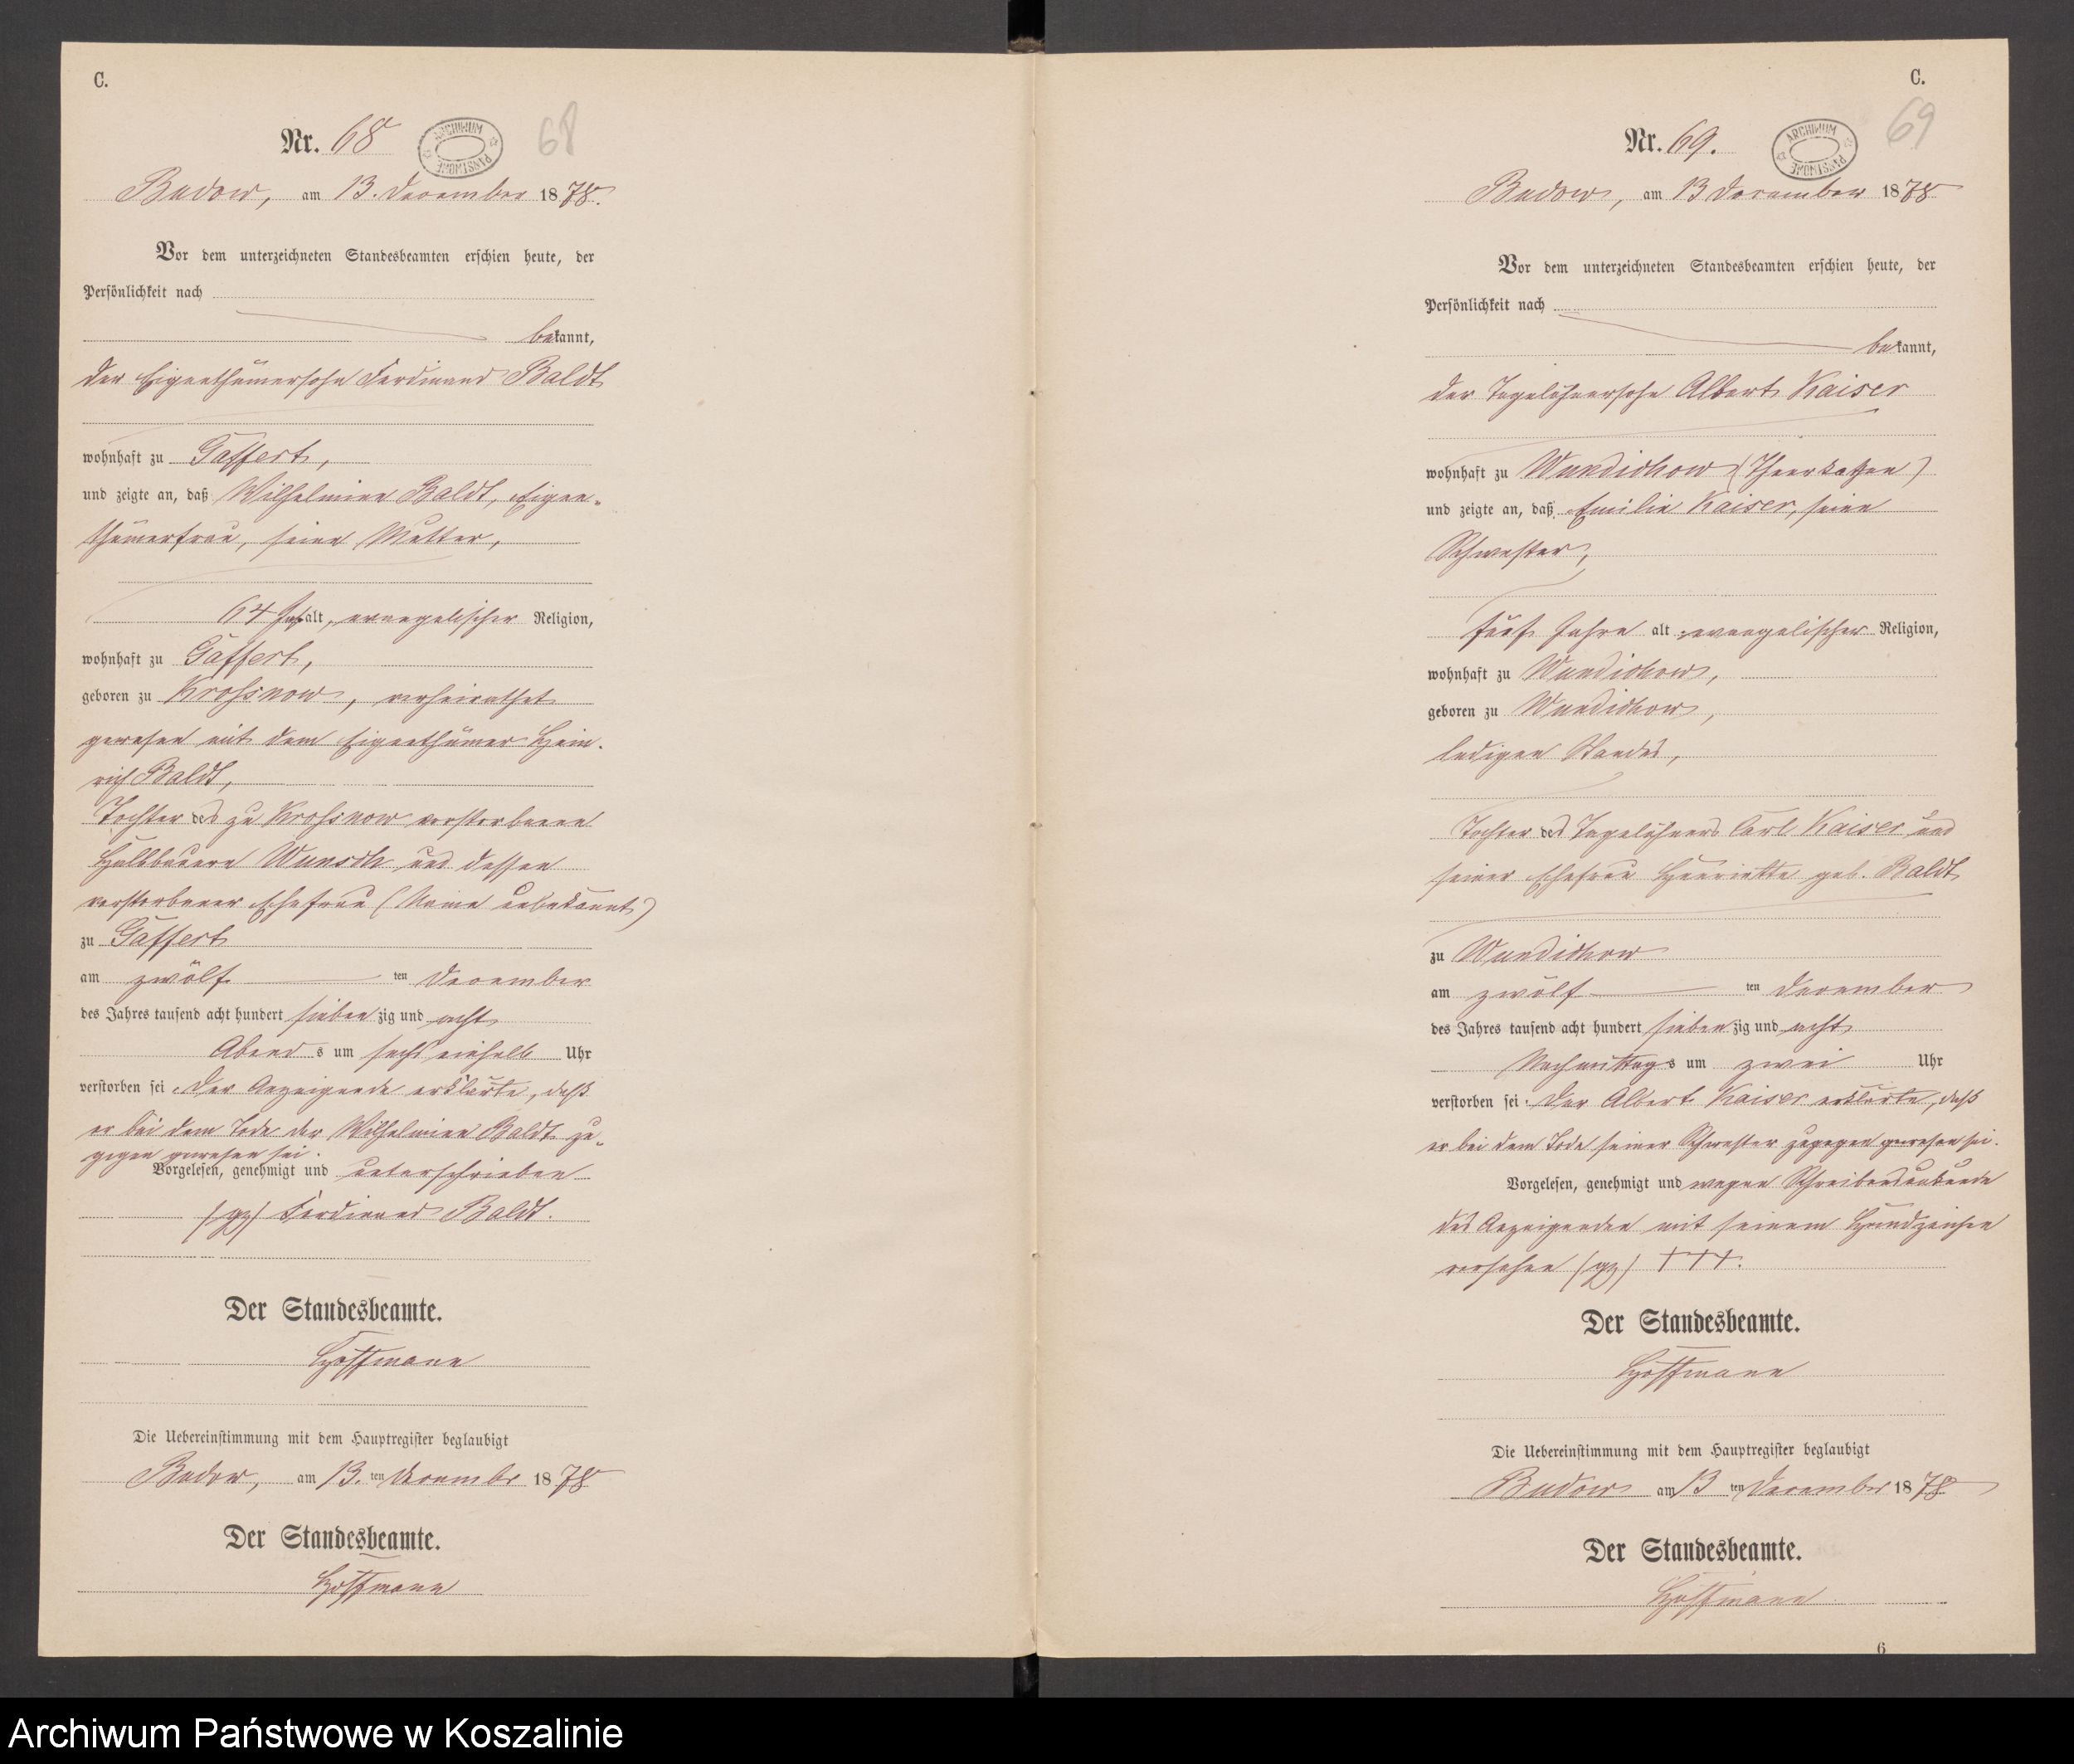 C.
Nr. 68
ARCHIWUM PAŃSTWOWE
68
Budow, am 13. December 1878.
Vor dem unterzeichneten Standesbeamten erschien heute, der
Persönlichkeit nach
bekannt,
der Eigenthümersohn Ferdinand Baldt
wohnhaft zu Gaffert,
und zeigte an, daß Wilhelmine Baldt, Eigen-
thümerfrau, seine Mutter,
64 Jahr alt, evangelischer Religion,
wohnhaft zu Gaffert,
geboren zu Krossnow, verheirathet
gewesen mit dem Eigenthümer Hein-
rich Baldt,
Tochter des zu Krossnow verstorbenen
Halbbauern Wunsch und dessen
verstorbener Ehefrau (Name unbekannt)
zu Gaffert
am zwölf ten December
des Jahres tausend acht hundert sieben zig und acht
Abend s um sechs einhalb Uhr
verstorben sei. Der Anzeigende erklärte, daß
er bei dem Tode der Wilhelmine Baldt zu-
gegen gewesen sei.
Vorgelesen, genehmigt und unterschrieben
(gz) Ferdinand Baldt.
Der Standesbeamte.
Hoffmann
Die Uebereinstimmung mit dem Hauptregister beglaubigt
Budow, am 13. ten December 1878
Der Standesbeamte.
Hoffmann
C.
Nr. 69.
ARCHIWUM PAŃSTWOWE
69
Budow, am 13 December 1878
Vor dem unterzeichneten Standesbeamten erschien heute, der
Persönlichkeit nach
bekannt,
der Tagelöhnersohn Albert Kaiser
wohnhaft zu Wundichow (Theerkathen)
und zeigte an, daß Emilie Kaiser, seine
Schwester,
fünf Jahre alt, evangelischer Religion,
wohnhaft zu Wundichow,
geboren zu Wundichow,
ledigen Standes,
Tochter des Tagelöhners Carl Kaiser und
seiner Ehefrau Henriette geb. Baldt
zu Wundichow
am zwölf ten December
des Jahres tausend acht hundert sieben zig und acht
Nachmittag s um zwei Uhr
verstorben sei. Der Albert Kaiser erklärte, daß
er bei dem Tode seiner Schwester zugegen gewesen sei.
Vorgelesen, genehmigt und wegen Schreibensunkunde
des Anzeigenden mit seinem Handzeichen
versehen (gz) +++.
Der Standesbeamte.
Hoffmann
Die Uebereinstimmung mit dem Hauptregister beglaubigt
Budow am 13 ten December 1878
Der Standesbeamte.
Hoffmann
6
Archiwum Państwowe w Koszalinie